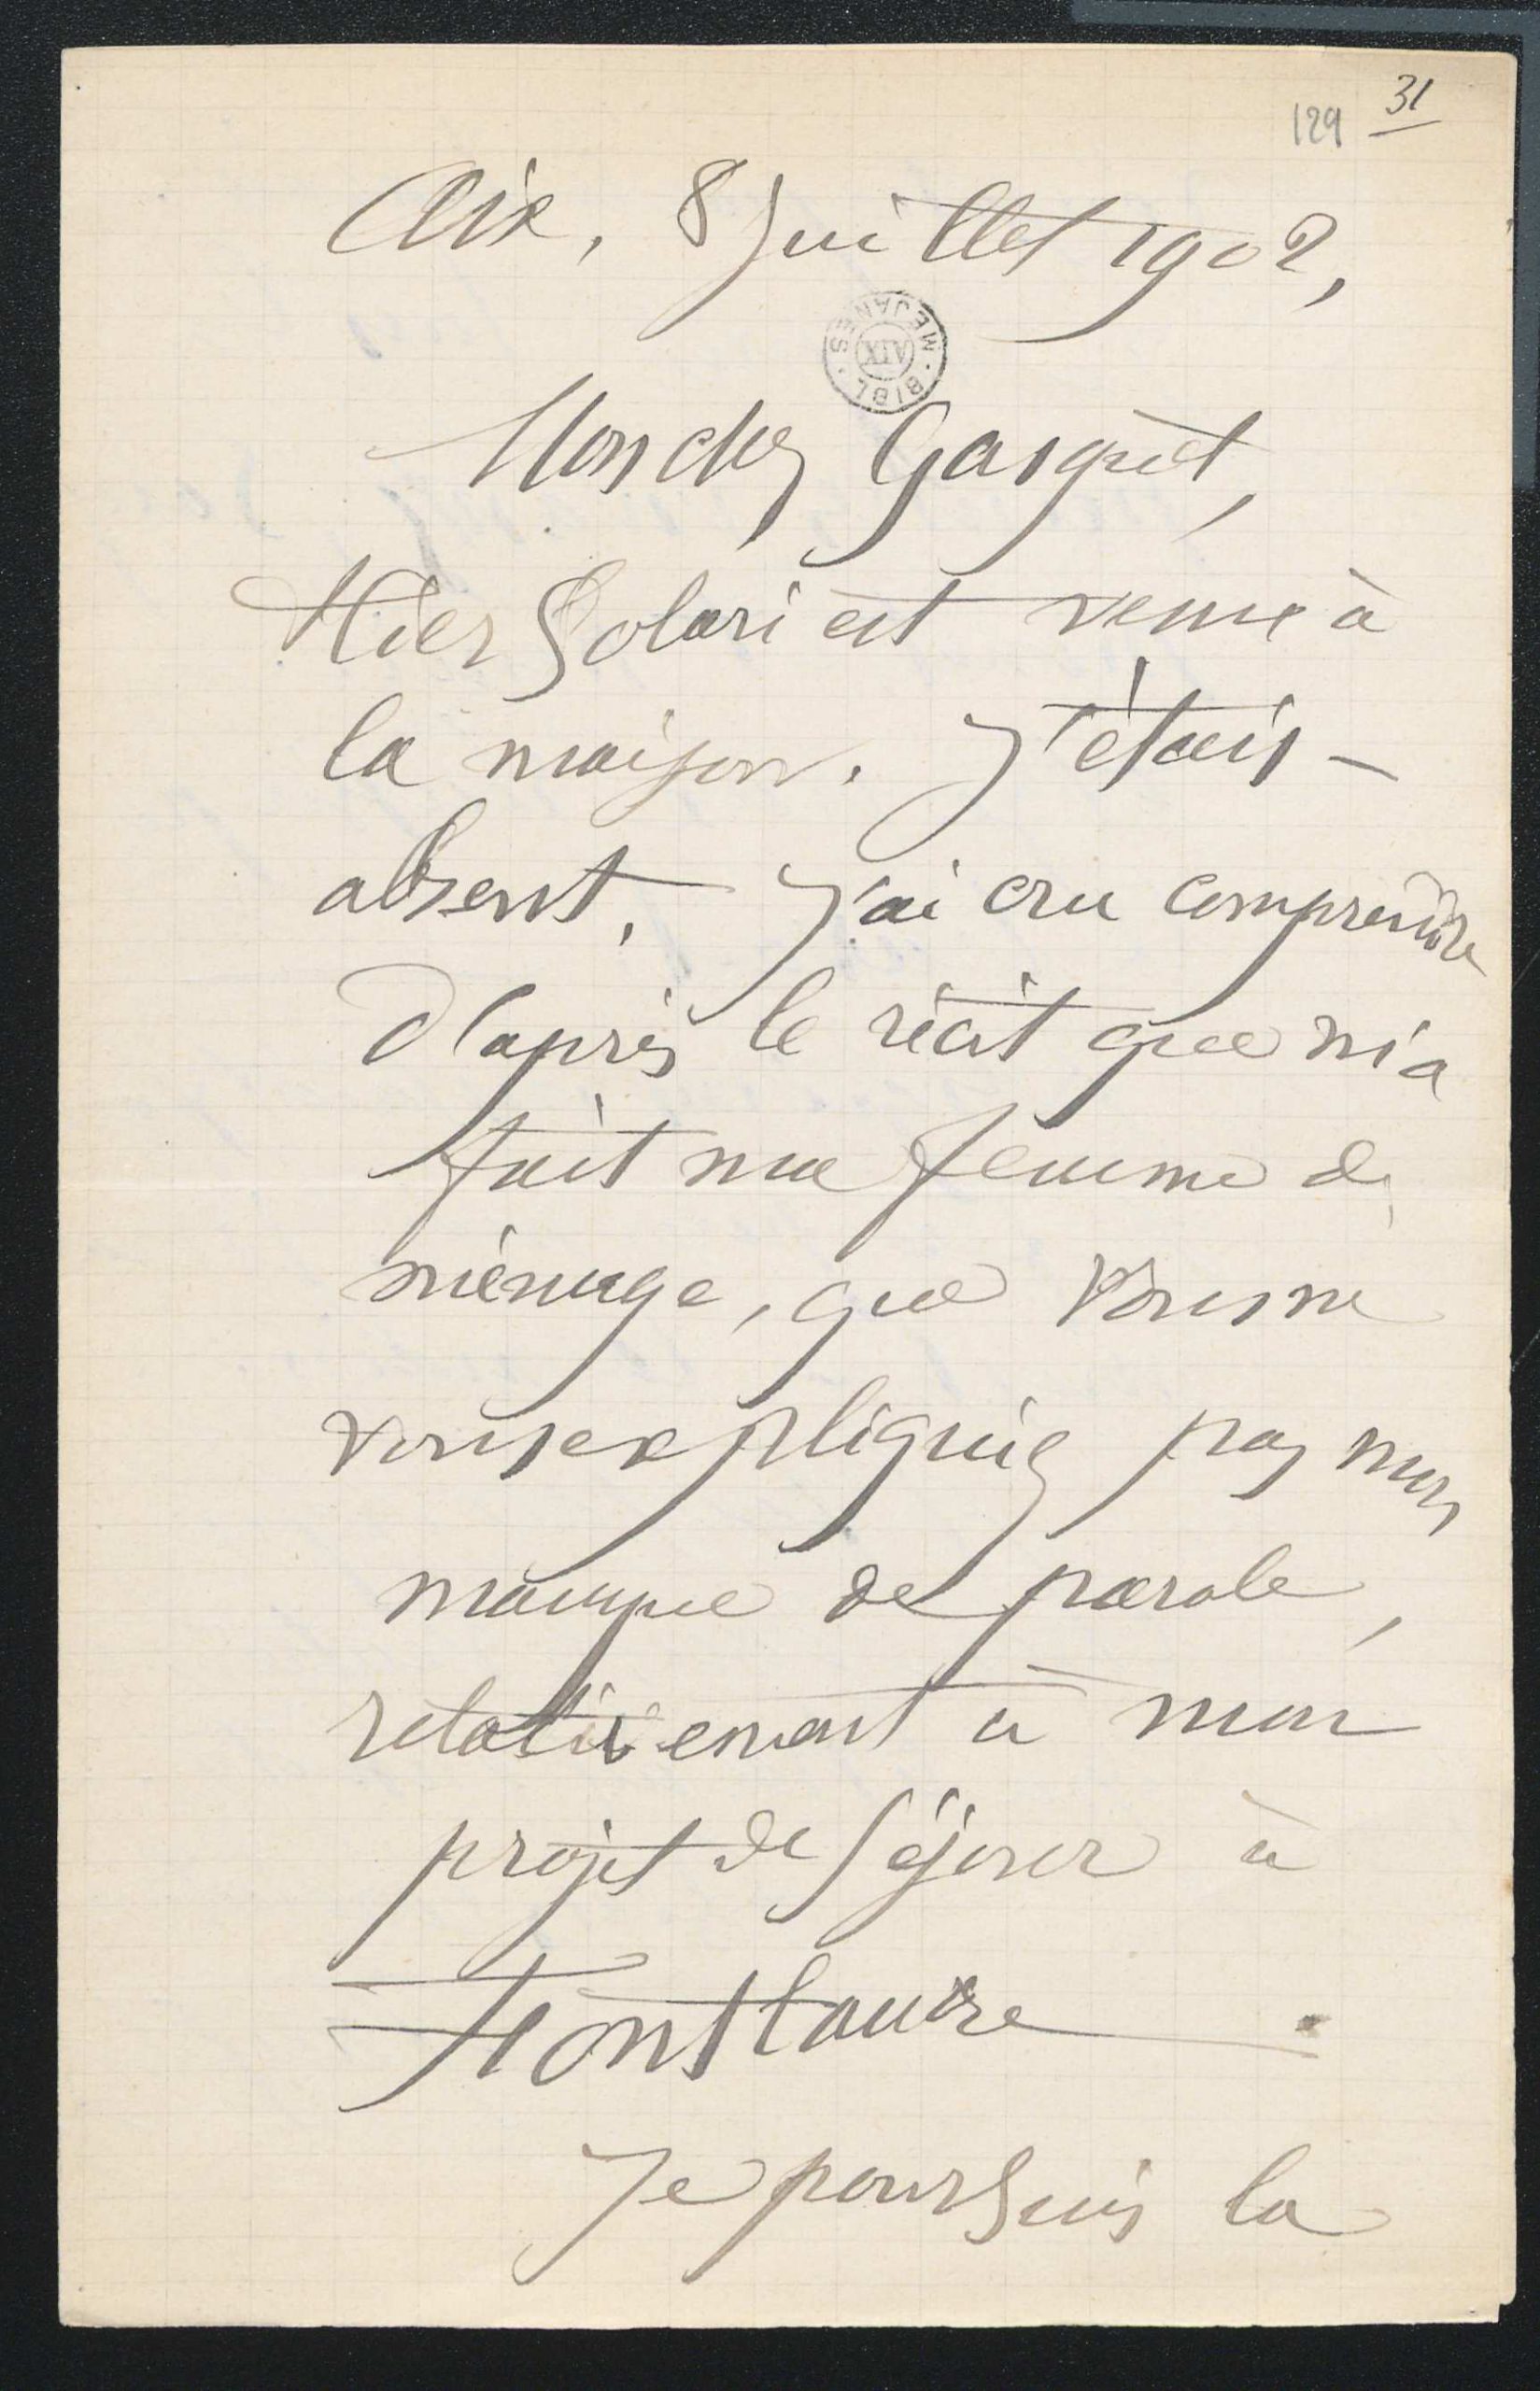 129 31
Aix, 8 Juillet 1902,
BIBL. MEJANES
AIX
Mon cher Gasquet,
Hier Solari est venu à
la maison. J'étais
absent. J'ai cru comprendre
d'après le récit que m'a
fait ma femme de
ménage, que vous ne
vous expliquiez pas mon
manque de parole,
relativement à mon
projet de séjour à
Fontlaure.
Je poursuis la